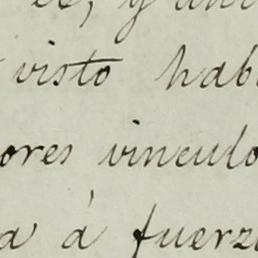 y
visto hab
ores vinculo
a á fuerza